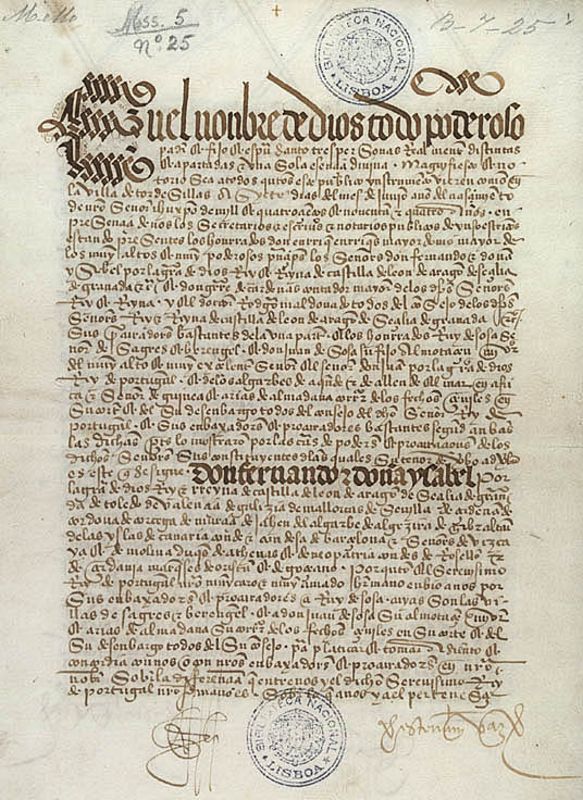 Mss. 5
nº 25
B-7-25
BIBLIOTECA NACIONAL
LISBOA
En el nonbre de dios todo poderoso
padre & fijo & espu santo tres personas realmente distintas
& apartadas & una sola esencia divina. Magnifiesto & no
torio sea a todos quantos este publico ynstrumento vieren como en
la villa de tordesillas a syete dias del mes de junio año del nasçimiento
de nro Señor ihu xpo de mill & quatroçientos & noventa & quatro años. en
presençia de nos los Secretarios & escrivanos & notarios publicos de yuso escriptos
estando presentes los honrrados don enrrique enrriques mayordomo mayor de
los muy altos & muy poderosos prinçipes los Señores don fernando & doña
ysabel por la graçia de dios Rey & Reyna de castilla de leon de aragon de seçilia
de granada &c & don gutierre de cardenas contador mayor de los dichos Señores
Rey & Reyna y el doctor Rodrigo maldonado todos del consejo de los dichos
Señores Rey & Reyna de castilla de leon de aragon de seçilia de granada &c
sus procuradores bastantes de la una parte. & los honrrados Ruy de sosa Se
ñor de Sagres & berengel & don juan de sosa su fijo almotaçen mayor
del muy alto & muy exçelente Señor el Señor don juan por la graçia de dios
Rey de portugal & de los algarbes de aquende & de allende el mar en afri
ca & Señor de guinea & arias de almadana
su corte & del su desenbargo todos del consejo del dicho Señor Rey de
portugal & sus enbaxadores & procuradores bastantes segund amas
las dichas partes lo mostraron por las cartas de poderes & procuraçiones de los
dichos Señores sus constituyentes de las quales su tenor de verbo ad verbo
es este que se sigue. Don fernando & doña ysabel por
la graçia de dios Rey & Reyna de castilla de leon de aragon de seçilia de grana
da de toledo de valençia de galizia de mallorcas de sevilla de çerdeña de
cordova de corçega de murçia de jahen del algarbe de algezira de gibraltar
de las yslas de canaria conde & condesa de barçelona & Señores de vizca
ya & de molina duques de athenas & de neopatria condes de Rosellon
& de çerdania marqueses de oristan & de goçiano. Por quanto el Serenisimo
Rey de portugal nro muy caro & muy amado hermano enbio a nos por
sus enbaxadores & procuradores a Ruy de sosa cuyas son las vi
llas de sagres & berengel & a don juan de sosa su almotaçen mayor
& arias de almadana su corregidor de los fechos çeviles en su corte & del
su desenbargo todos del su consejo para platicar & tomar asiento &
concordia con nos o con nros enbaxadores & procuradores en nro
nonbre sobre la diferençia que entre nos y el dicho Serenisimo Rey
de portugal nro hermano es sobre lo que a nos y a el pertenesçe
BIBLIOTECA NACIONAL
LISBOA